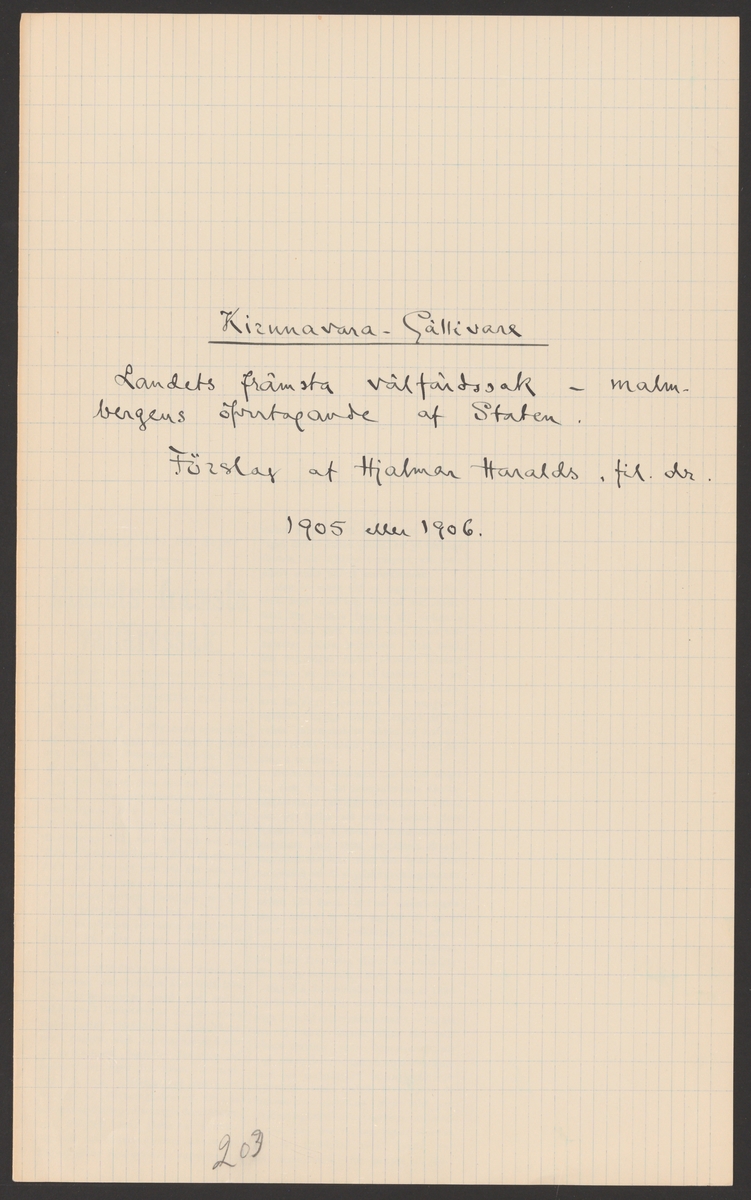 Kirunavara - Gällivare
Landets främsta välfärdssak – malm-
bergens öfvertagande af Staten.
Förslag af Hjalmar Haralds, fil. dr.
1905 eller 1906.
203